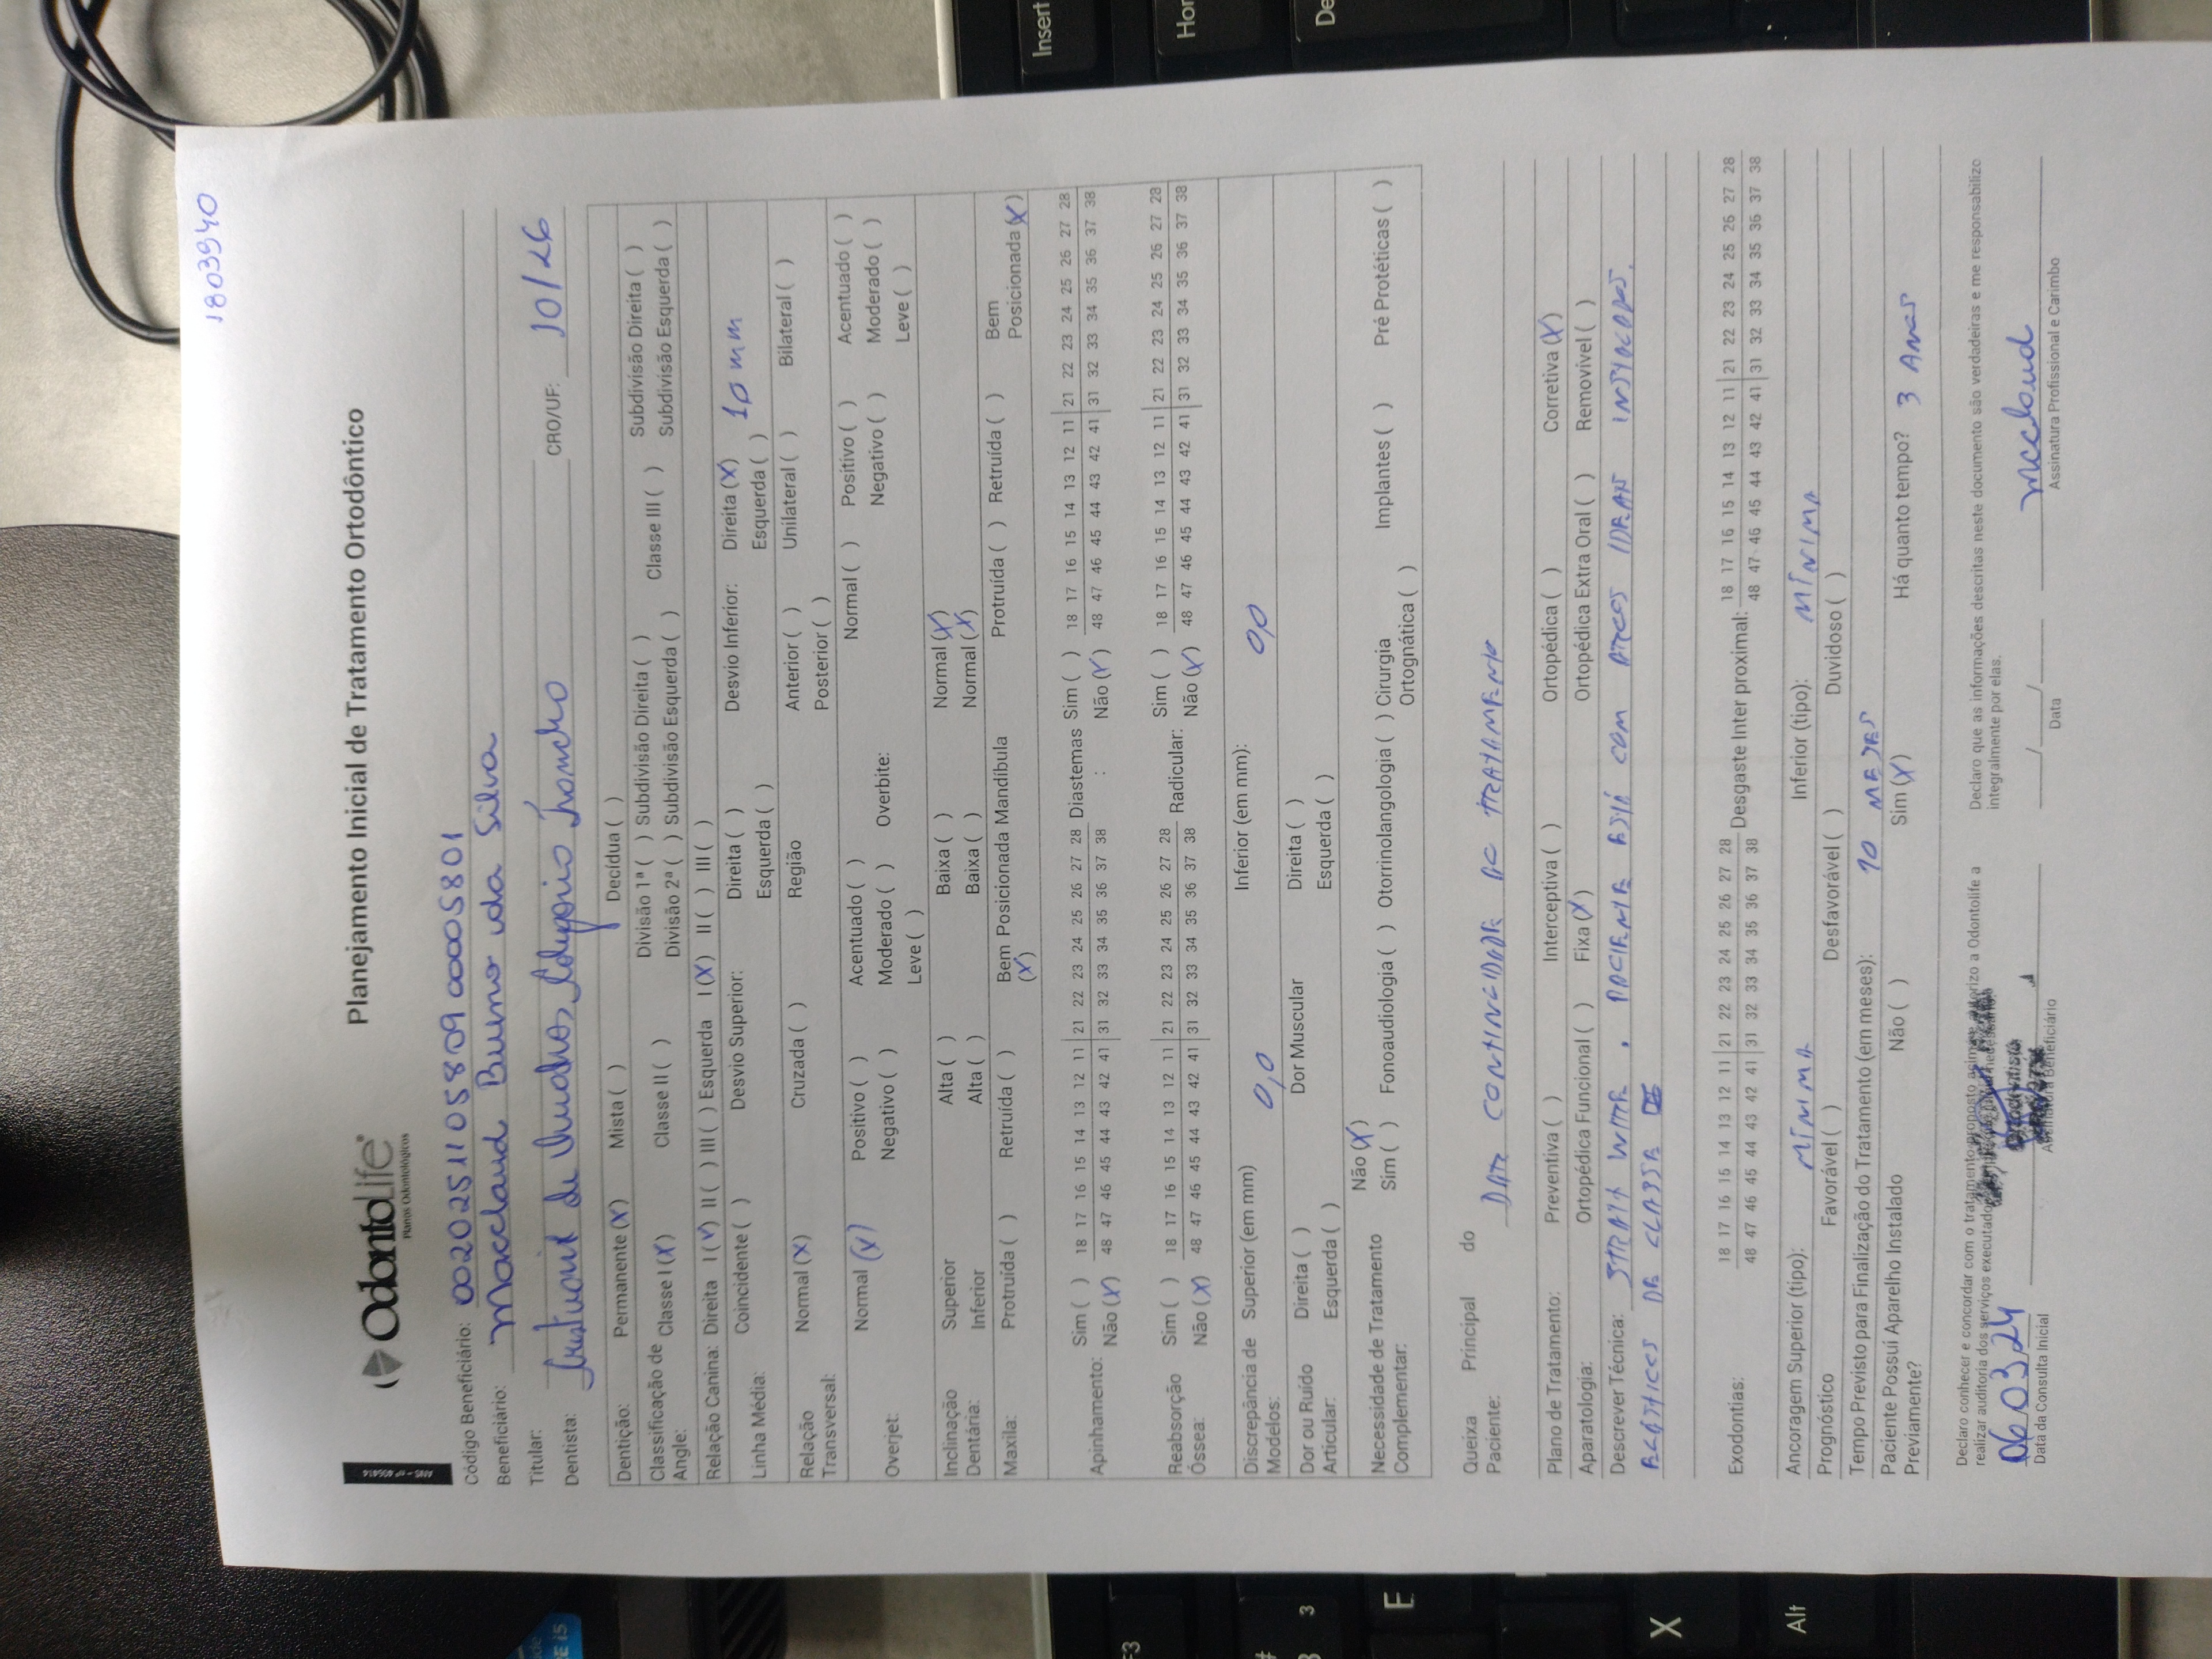 1803940
OdontoLife®
Planos Odontológicos
Planejamento Inicial de Tratamento Ortodôntico
Código Beneficiário: 002025110580900005801
Beneficiário: Maccland Bueno da Silva
Titular:
Dentista: CRO/UF: 10/26
Dentição: Permanente (X) Mista ( ) Decídua ( )
Classificação de Angle: Classe I (X) Classe II ( ) Divisão 1ª ( ) Subdivisão Direita ( ) Classe III ( ) Subdivisão Direita ( )
Divisão 2ª ( ) Subdivisão Esquerda ( ) Subdivisão Esquerda ( )
Relação Canina: Direita I (X) II ( ) III ( ) Esquerda I (X) II ( ) III ( )
Linha Média: Coincidente ( ) Desvio Superior: Direita ( ) Desvio Inferior: Direita (X) 10 mm
Esquerda ( ) Esquerda ( )
Relação Transversal: Normal (X) Cruzada ( ) Região Anterior ( ) Unilateral ( ) Bilateral ( )
Posterior ( )
Overjet: Normal (X) Positivo ( ) Acentuado ( ) Overbite: Normal ( ) Positivo ( ) Acentuado ( )
Negativo ( ) Moderado ( ) Negativo ( ) Moderado ( )
Leve ( ) Leve ( )
Inclinação Dentária: Superior Alta ( ) Baixa ( ) Normal (X)
Inferior Alta ( ) Baixa ( ) Normal (X)
Maxila: Protruída ( ) Retruída ( ) Bem Posicionada (X) Mandíbula Protruída ( ) Retruída ( ) Bem Posicionada (X)
Apinhamento: Sim ( ) 18 17 16 15 14 13 12 11 21 22 23 24 25 26 27 28 Diastemas : Sim ( ) 18 17 16 15 14 13 12 11 21 22 23 24 25 26 27 28
Não (X) 48 47 46 45 44 43 42 41 31 32 33 34 35 36 37 38 Não (X) 48 47 46 45 44 43 42 41 31 32 33 34 35 36 37 38
Reabsorção Óssea: Sim ( ) 18 17 16 15 14 13 12 11 21 22 23 24 25 26 27 28 Radicular: Sim ( ) 18 17 16 15 14 13 12 11 21 22 23 24 25 26 27 28
Não (X) 48 47 46 45 44 43 42 41 31 32 33 34 35 36 37 38 Não (X) 48 47 46 45 44 43 42 41 31 32 33 34 35 36 37 38
Discrepância de Modelos: Superior (em mm) 0,0 Inferior (em mm): 0,0
Dor ou Ruído Articular: Direita ( ) Dor Muscular Direita ( )
Esquerda ( ) Esquerda ( )
Necessidade de Tratamento Complementar: Não (X)
Sim ( ) Fonoaudiologia ( ) Otorrinolangologia ( ) Cirurgia Ortognática ( ) Implantes ( ) Pré Protéticas ( )
Queixa Principal do Paciente: DAR CONTINUIDADE AO TRATAMENTO
Plano de Tratamento: Preventiva ( ) Interceptiva ( ) Ortopédica ( ) Corretiva (X)
Aparatologia: Ortopédica Funcional ( ) Fixa (X) Ortopédica Extra Oral ( ) Removivel ( )
Descrever Técnica: PACIENTE ESTÁ COM ARCOS
ELÁSTICOS DE CLASSE
Exodontias: 18 17 16 15 14 13 12 11 21 22 23 24 25 26 27 28 Desgaste Inter proximal: 18 17 16 15 14 13 12 11 21 22 23 24 25 26 27 28
48 47 46 45 44 43 42 41 31 32 33 34 35 36 37 38 48 47 46 45 44 43 42 41 31 32 33 34 35 36 37 38
Ancoragem Superior (tipo): MÍNIMA Inferior (tipo): MÍNIMA
Prognóstico Favorável ( ) Desfavorável ( ) Duvidoso ( )
Tempo Previsto para Finalização do Tratamento (em meses): 10 MESES
Paciente Possuí Aparelho Instalado Previamente? Não ( ) Sim (X) Há quanto tempo? 3 Anos
Declaro conhecer e concordar com o tratamento proposto acima, autorizo a Odontolife a realizar auditoria dos serviços executados
Declaro que as informações descritas neste documento são verdadeiras e me responsabilizo integralmente por elas.
06 03 24
Data da Consulta Inicial
Assinatura Beneficiário
/ /
Data
Maccland
Assinatura Profissional e Carimbo
Insert
F3
3
E
X
Alt